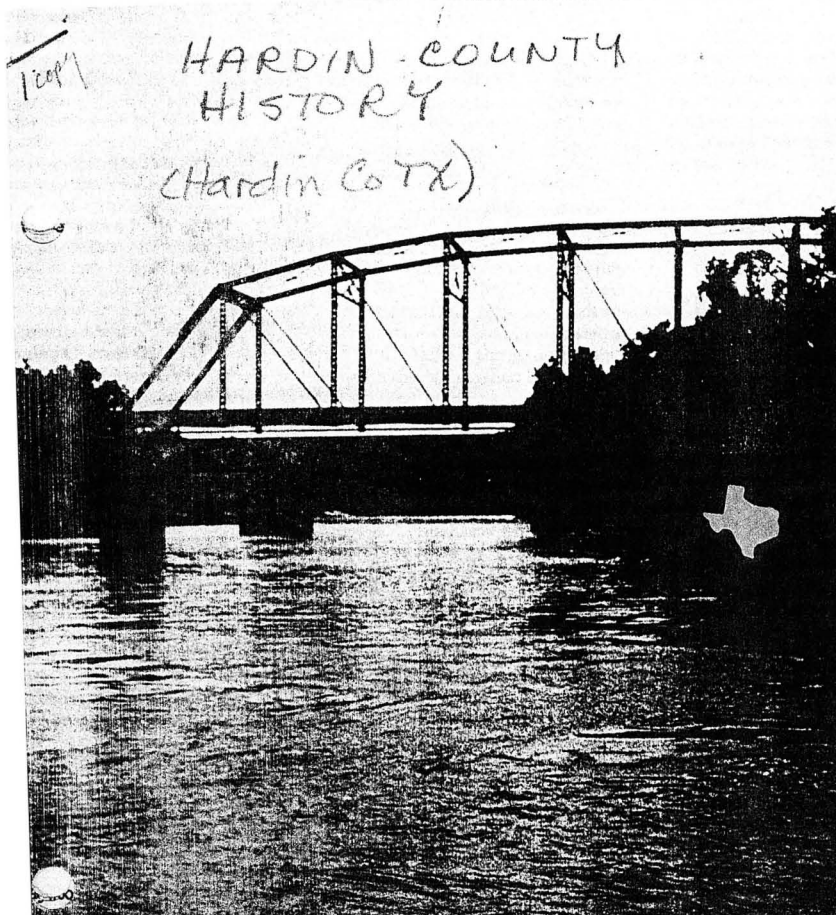 1 copy
HARDIN COUNTY
HISTORY
(Hardin Co TX)